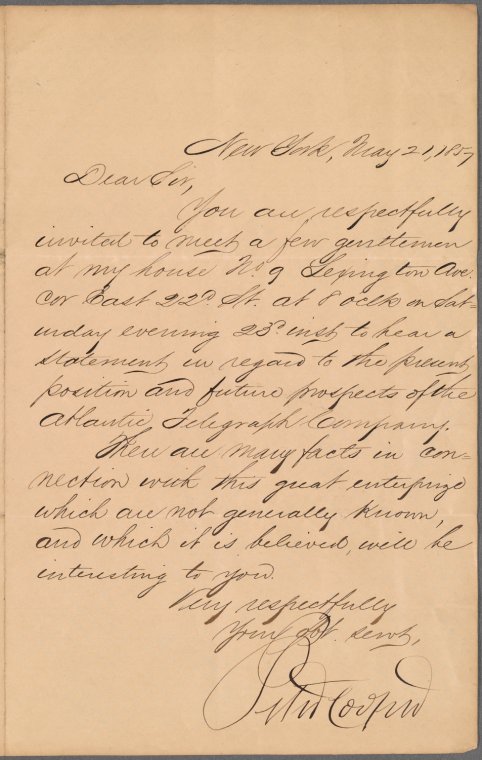 New York, May 21, 1857
Dear Sir,
You are respectfully
invited to meet a few gentlemen
at my house No 9 Lexington Ave.
cor East 22d St. at 8 oclk on Sat-
urday evening 23d inst to hear a
statement in regard to the present
position and future prospects of the
Atlantic Telegraph Company.
There are many facts in con-
nection with this great enterprize
which are not generally known,
and which it is believed, will be
interesting to you.
Very respectfully
Your obt. servt,
Peter Cooper